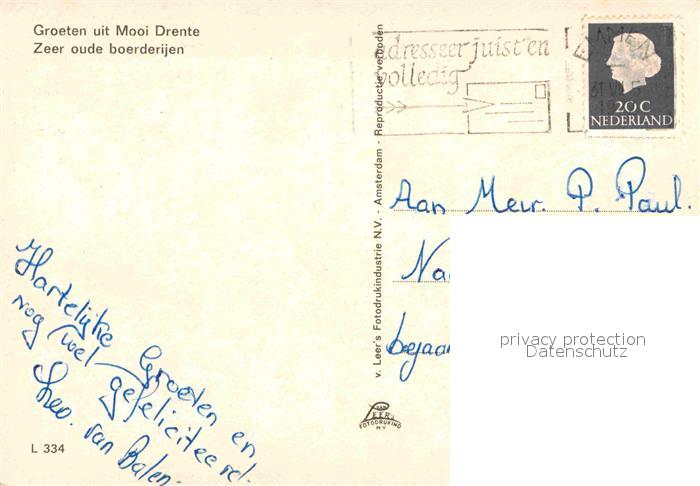 Groeten uit Mooi Drente
Zeer oude boerderijen
adresseer juist en
volledig
20 C
NEDERLAND
v. Leer's Fotodrukindustrie N.V. - Amsterdam - Reproductie verboden
Aan Mevr. P. Paul.
Na
bejaar
privacy protection
Datenschutz
Hartelijke Groeten en
nog wel gefeliciteerd.
van Balen.
VAN
LEER'S
FOTODRUKIND
N.V.
L 334